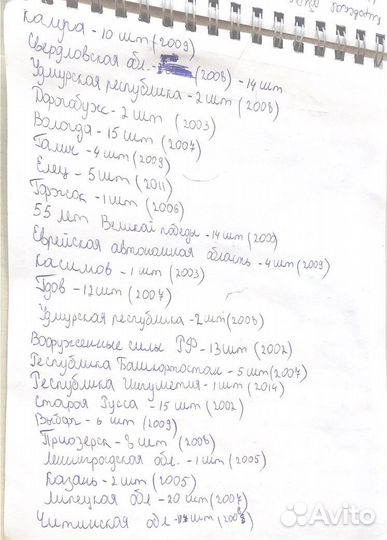 Калуга - 10 шт (2009)
Свердловская обл. - (2008) - 14 шт
Удмурская республика - 2 шт (2008)
Дорогобуж - 2 шт (2003)
Вологда - 15 шт (2007)
Галич - 4 шт (2009)
Елец - 5 шт (2011)
Торжок - 1 шт (2006)
55 лет Великой победы - 14 шт
Еврейская автономная область - 4 шт (2009)
Касимов - 1 шт (2003)
Гдов - 12 шт (2007)
Удмурская республика - 2 шт (2008)
Вооруженные силы РФ - 13 шт (2002)
Республика Башкортостан - 5 шт (2007)
Республика Ингушетия - 1 шт (2014)
Старая Русса - 15 шт (2002)
Выборг - 6 шт (2009)
Приозерск - 3 шт (2008)
Ленинградская обл. - 1 шт (2005)
Казань - 2 шт (2005)
Липецкая обл - 20 шт (2007)
Читинская обл - шт
Avito